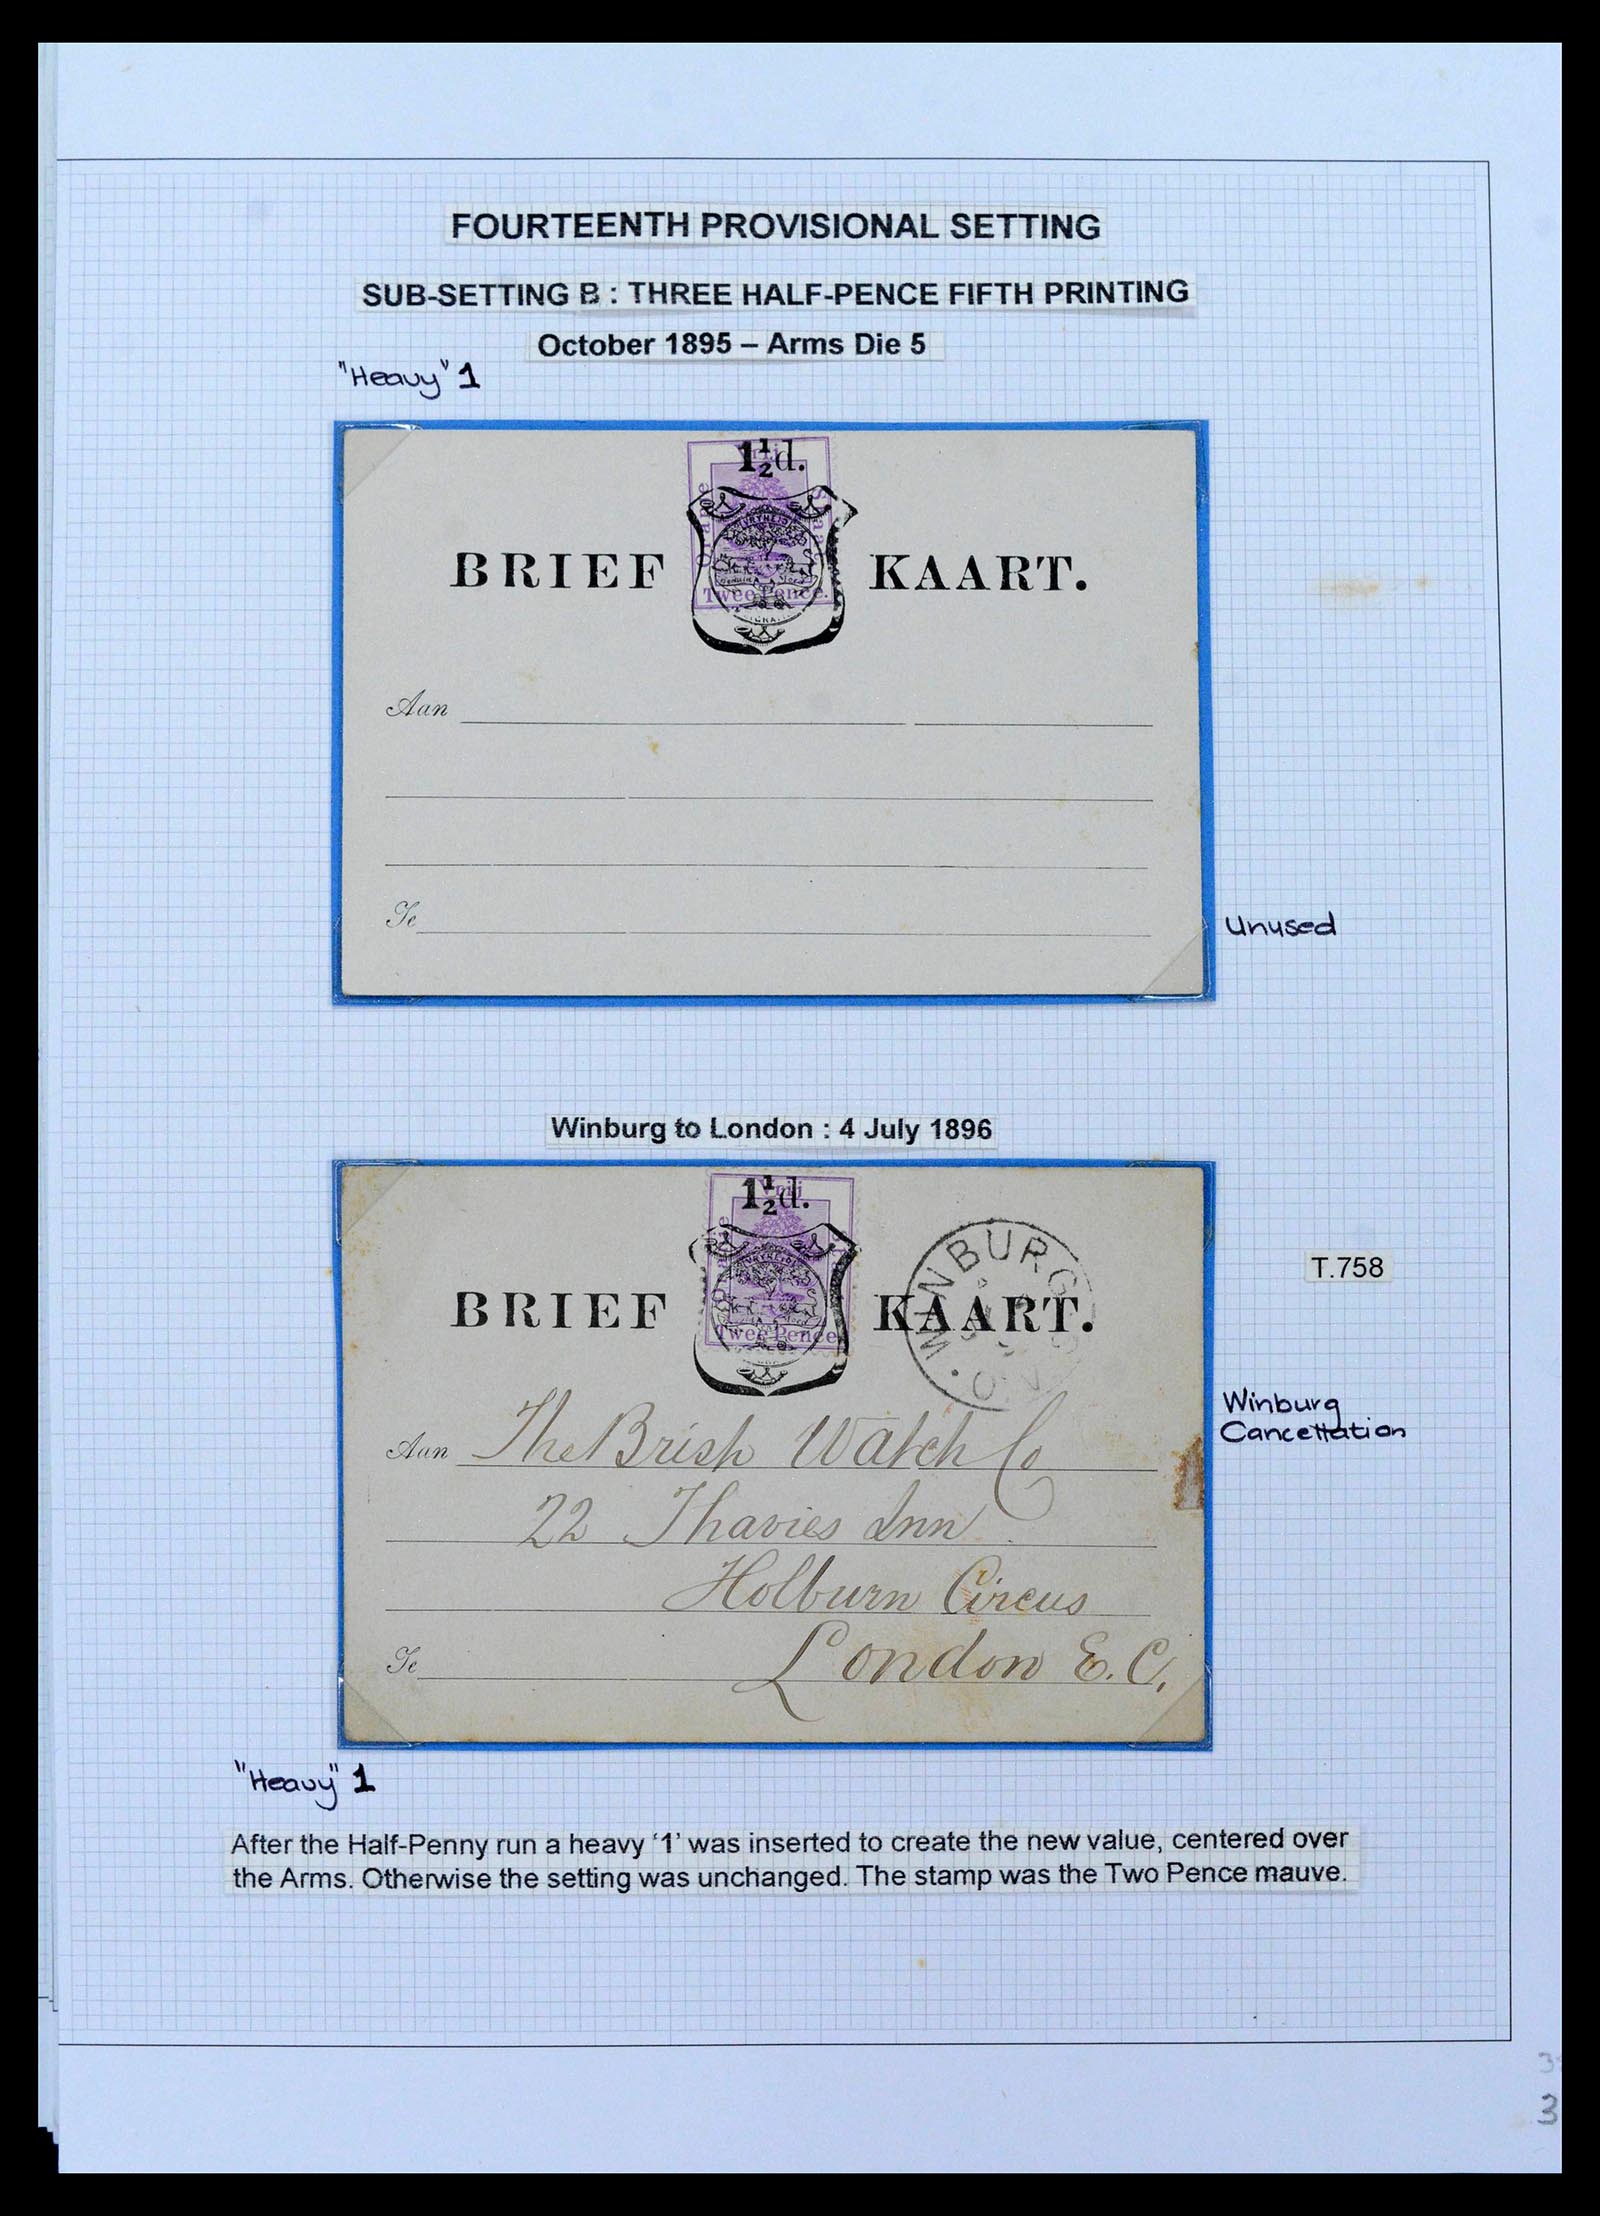 FOURTEENTH PROVISIONAL SETTING
SUB-SETTING B : THREE HALF-PENCE FIFTH PRINTING
October 1895 – Arms Die 5
"Heavy" 1
1½d.
Vrij
Oranje Staat
Twee Pence.
BRIEF KAART.
Aan
Te
Unused
Winburg to London : 4 July 1896
1½d.
Vrij
Twee Pence
WINBURG
BRIEF KAART.
T.758
Winburg
Cancellation
Aan The Brish Watch Co
22 Thavies Inn
Holburn Circus
Te London E.C.
"Heavy" 1
After the Half-Penny run a heavy ‘1’ was inserted to create the new value, centered over
the Arms. Otherwise the setting was unchanged. The stamp was the Two Pence mauve.
3